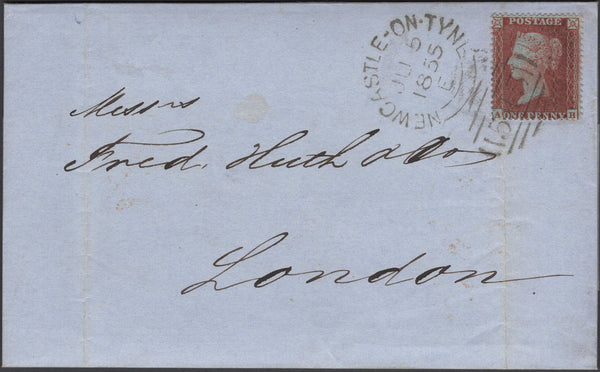 NEWCASTLE-ON-TYNE
JU 5
1855
E
POSTAGE
ONE PENNY
545
Messrs
Fred. Huth & Co
London